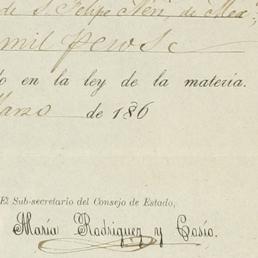 de S. Felipe Neri, de Mex
mil pesos
o en la ley de la materia.
Marzo de 186
El Sub-secretario del Consejo de Estado,
María Rodriguez y Cosío.